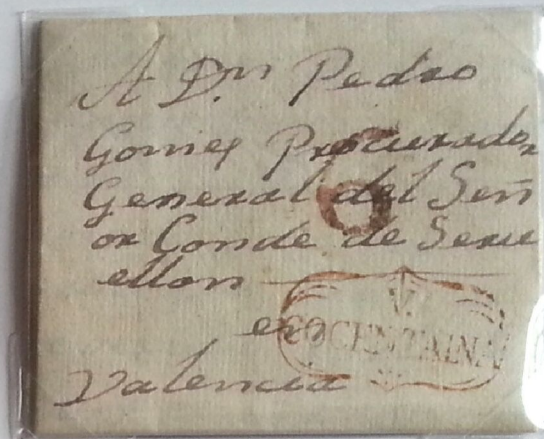 A Dn. Pedro
Gomez Procurador
General del Señ
or Conde de Servu
ellon
en
COCENTAINA
Valencia